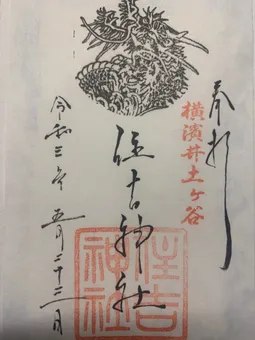 奉拝
横濱井土ヶ谷
住吉神社
住吉神社
令和三年 五月二十三日